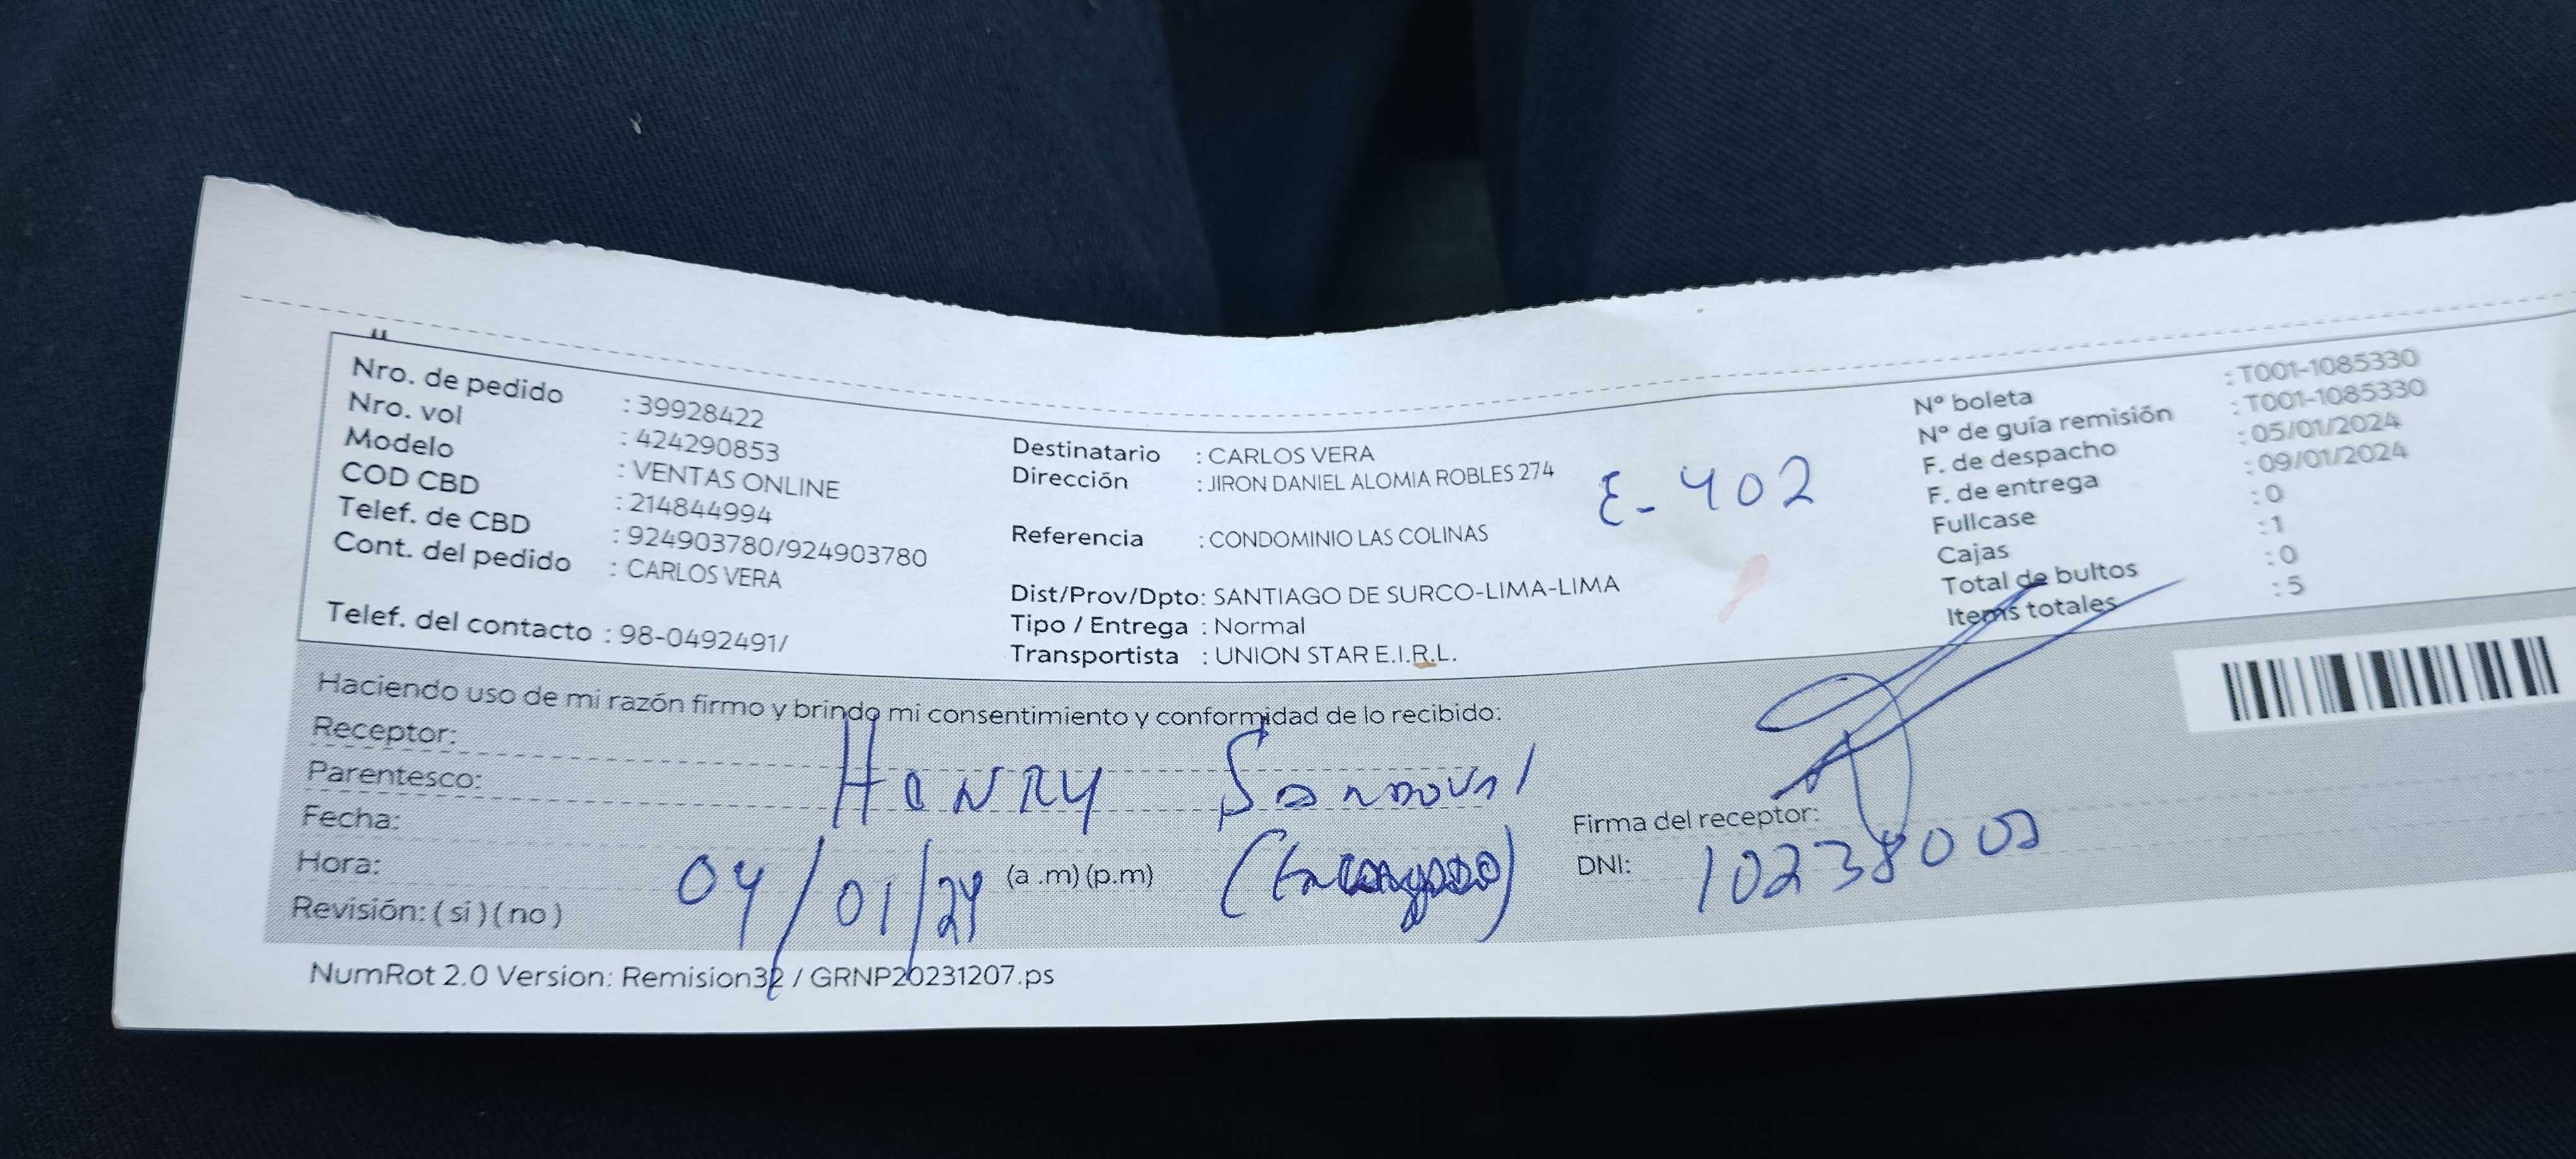 Nro. de pedido : 39928422
Nro. vol : 424290853
Modelo : VENTAS ONLINE
COD CBD : 214844994
Telef. de CBD : 924903780/924903780
Cont. del pedido : CARLOS VERA
Telef. del contacto : 98-0492491/
Destinatario : CARLOS VERA
Dirección : JIRON DANIEL ALOMIA ROBLES 274
E-402
Referencia : CONDOMINIO LAS COLINAS
Dist/Prov/Dpto: SANTIAGO DE SURCO-LIMA-LIMA
Tipo / Entrega : Normal
Transportista : UNION STAR E.I.R.L.
N° boleta : T001-1085330
N° de guía remisión : T001-1085330
F. de despacho : 05/01/2024
F. de entrega : 09/01/2024
Fullcase : 0
Cajas : 1
Total de bultos : 0
Items totales : 5
Haciendo uso de mi razón firmo y brindo mi consentimiento y conformidad de lo recibido:
Receptor:
Parentesco: HENRY Sandoval
Fecha:
Firma del receptor:
Hora: 04/01/24 (a .m) (p.m) (Encargado)
DNI: 10238002
Revisión: ( si ) ( no )
NumRot 2.0 Version: Remision32 / GRNP20231207.ps